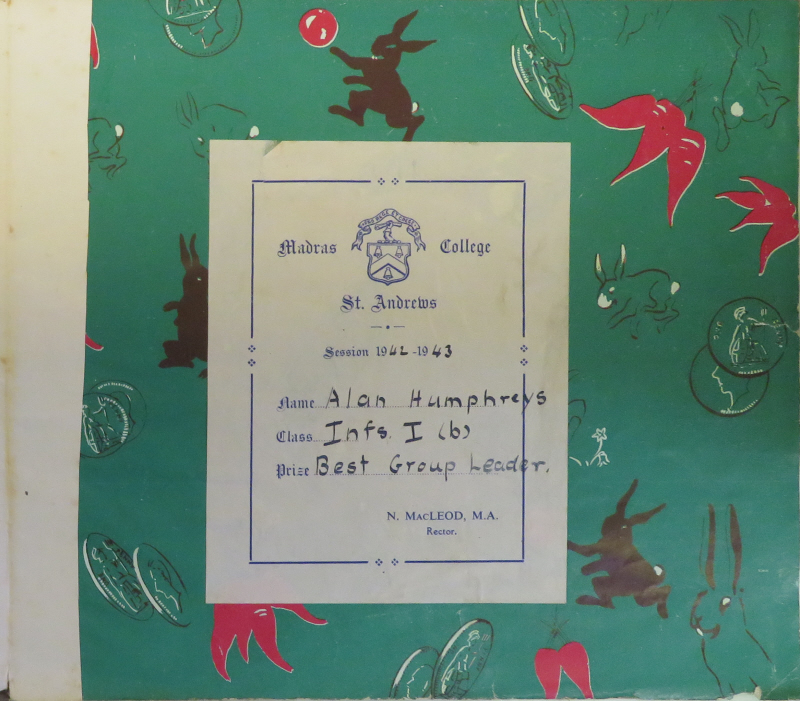 Madras College
St. Andrews
Session 1942-1943
Name Alan Humphreys
Class Infs. I (b)
Prize Best Group Leader.
N. MacLEOD, M.A.
Rector.